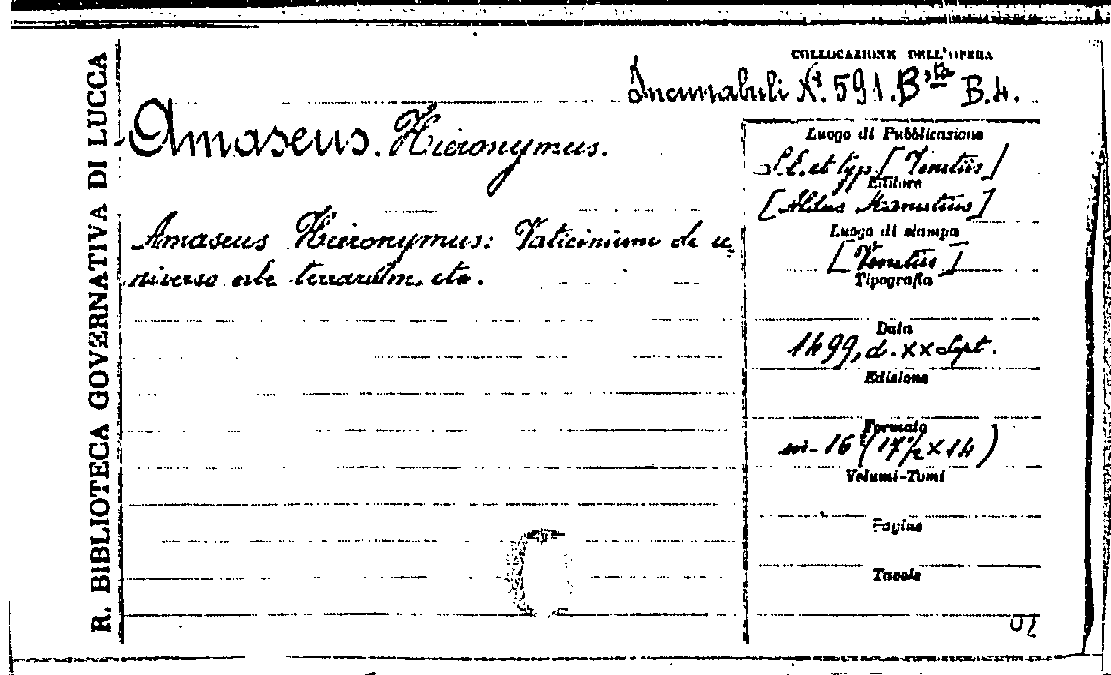 R. BIBLIOTECA GOVERNATIVA DI LUCCA
COLLOCAZIONE DELL'OPERA
Incunabuli N. 591. B.ta B.4.
Amaseus. Hieronymus.
Amaseus Hieronymus: Vaticinium de u=
niverso orbe terrarum. etc.
Luogo di Pubblicazione
S.l. et typ. [Venetiis]
Editore
[Aldus Manutius]
Luogo di stampa
[Venetiis]
Tipografia
Data
1499, d. XX Sept.
Edizione
Formato
in-16 (17 1/2 X 14)
Volumi-Tomi
Pagine
Tavole